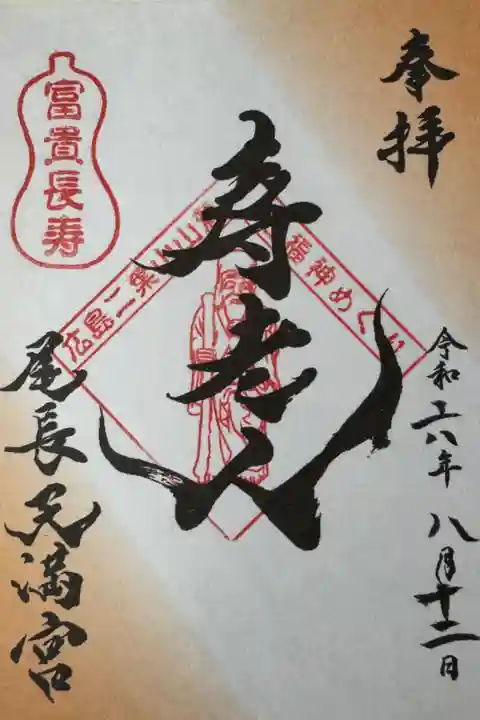 奉拝
令和六年八月十二日
寿老人
広島二葉山山麓七福神めぐり
富貴長寿
尾長天満宮